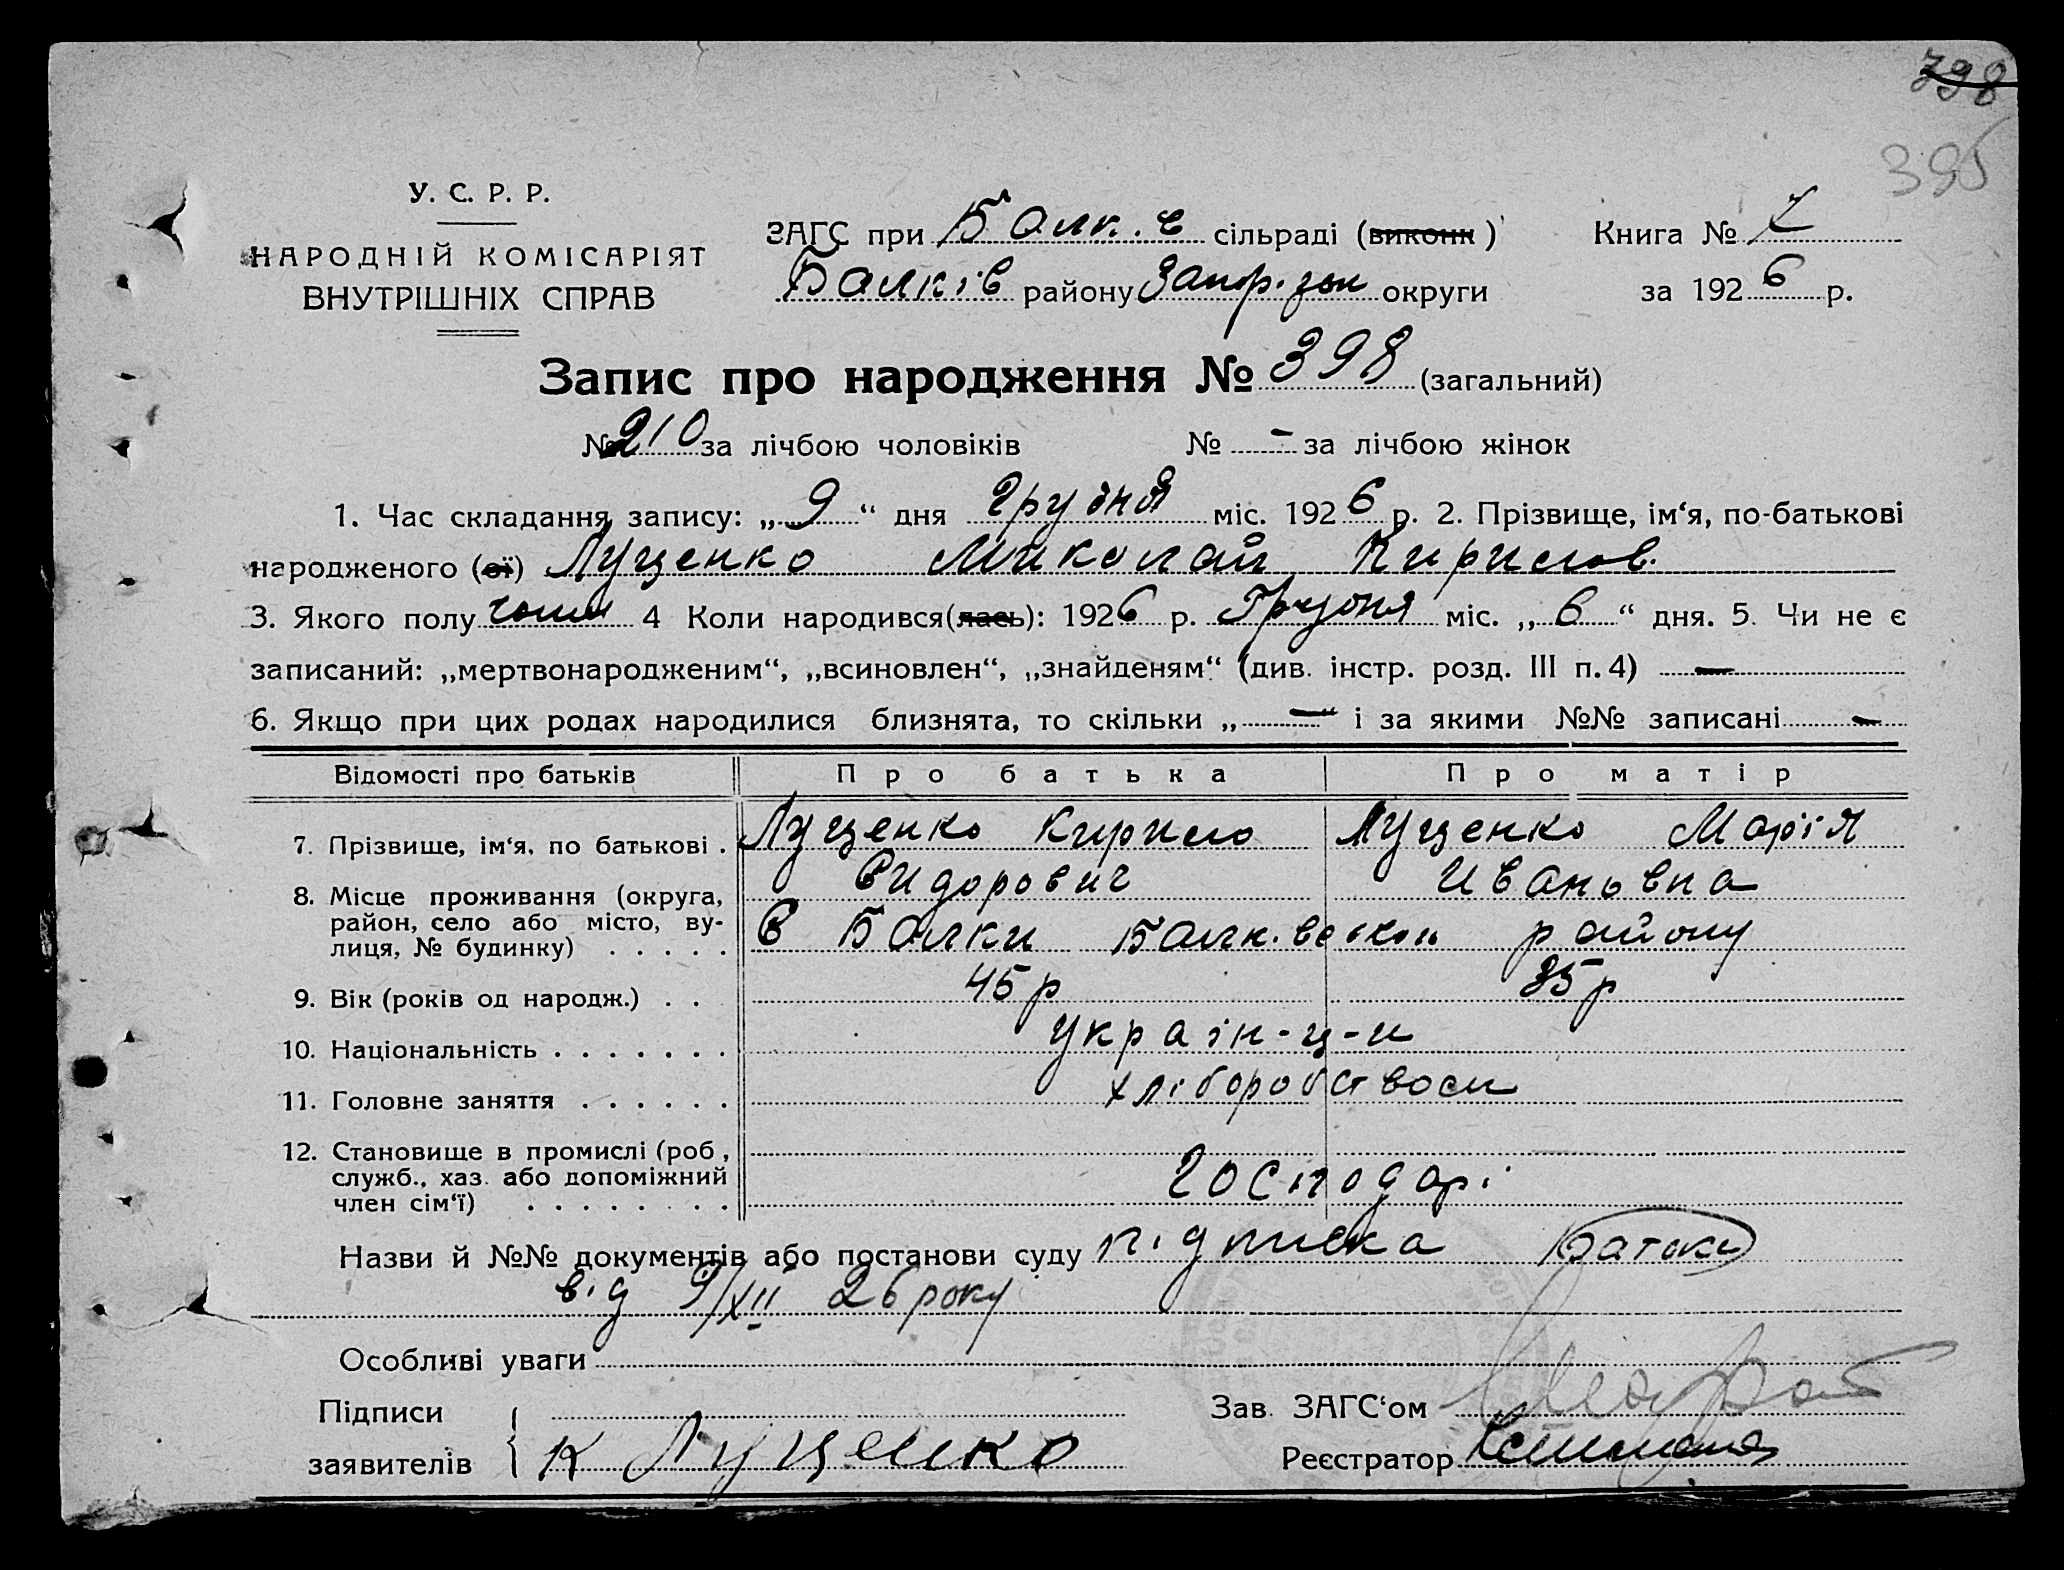 398
395
У. С. Р. Р.
НАРОДНІЙ КОМІСАРІЯТ
ВНУТРІШНІХ СПРАВ
ЗАГС при Балк. в сільраді (виконк)
Балків району Запоріз округи
Книга №
за 1926 р.
Запис про народження № 398 (загальний)
№ 210 за лічбою чоловіків № - за лічбою жінок
1. Час складання запису: „9“ дня Грудня міс. 1926 р. 2. Прізвище, ім‘я, по-батькові
народженого (ої) Луценко Миколай Кирилов.
3. Якого полу чолов 4 Коли народився(лась): 1926 р. Грудня міс. „6“ дня. 5. Чи не є
записаний: „мертвонародженим“, „всиновлен“, „знайденям“ (див. інстр. розд. III п. 4) —
6. Якщо при цих родах народилися близнята, то скільки „—“ і за якими №№ записані —
Відомості про батьків Про батька Про матір
7. Прізвище, ім‘я, по батькові . Луценко Кирило Луценко Марія
Сидорович Ивановна
8. Місце проживання (округа,
район, село або місто, ву-
лиця, № будинку) . . . . . В Балки району
9. Вік (років од народж.) . . 45 р 35 р
10. Національність . . . . . . . україн-ц-и
11. Головне заняття . . . . . . хліборобством
12. Становище в промислі (роб,
служб., хаз. або допоміжний
член сім‘ї) . . . . . . . . Господарі
Назви й №№ документів або постанови суду підписка Батьки
від 9/XII 26 року
Особливі уваги
Підписи
заявителів К Луценко
Зав. ЗАГС‘ом
Реєстратор